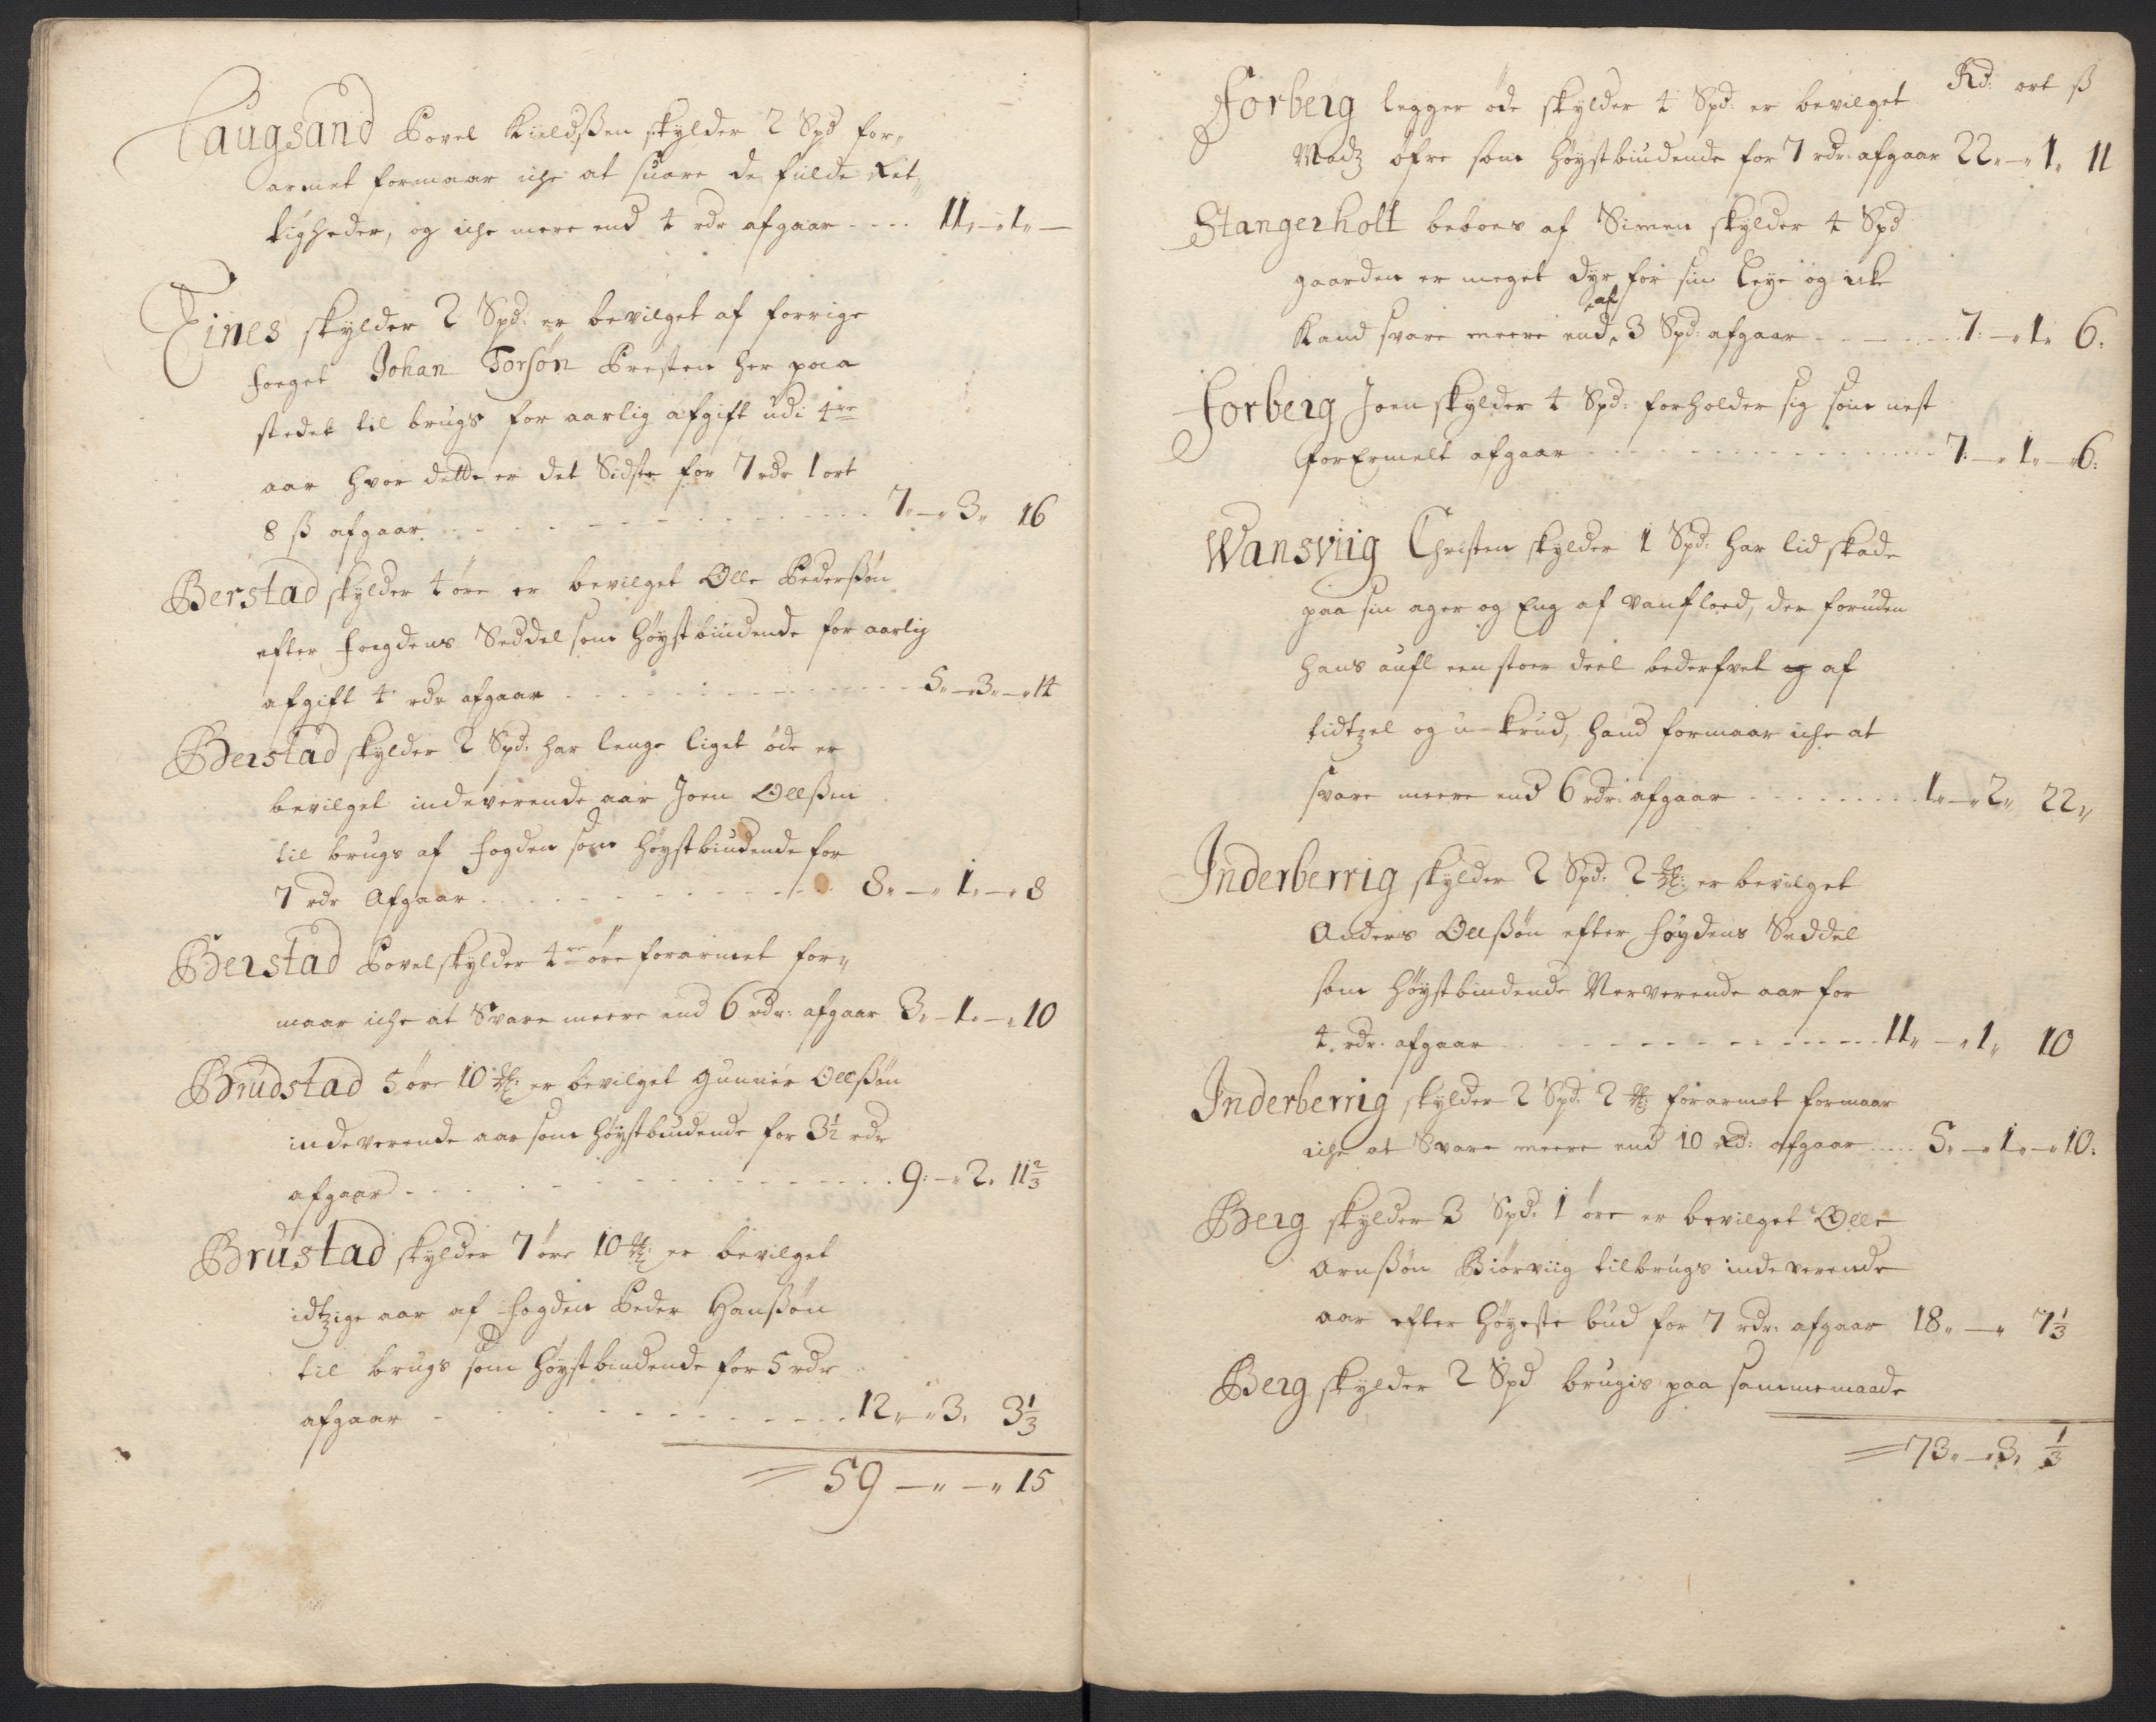 Laugsand Povel Kieldßen skylder 2 Spd for„
armet formaar iche at suare de fulde Ret„
tigheder, og iche mere end 4 rdr afgaar 11„—„1„—
Eines skylder 2 Spd: er bevilget af forrige
foeget Johan Torsøn Presten her paa
stedet til brugs for aarlig afgift udi 4re
aar hvor dette er det Sidste for 7 rdr 1 ort
8 ß afgaar 7„—„3„ 16
Berstad skylder 4 öre er bevilget Olle Pederßøn
efter foegdens Seddel som høystbiudende for aarlig
afgift 4 rdr afgaar 5„—„3„—„14
Berstad skylder 2 Spd: har lenge liget øde er
bevilget indeverende aar Joen Ollßen
til brugs af fogden som høystbiudende for
7 rdr Afgaar 8„—„1„—„8
Berstad Povel skylder 4re öre forarmet for„
maar iche at Svare meere end 6 rdr: afgaar 3„—1„—„10
Brudstad 5 öre 10 ℔: er bevilget Gunner Ollßøn
indeverende aar som høystbiudende for 3½ rdr
afgaar 9:—„2„ 11⅔
Brustad skylder 7 öre 10 ℔: er bevilget
idtzige aar af fogden Peder Hanßøn
til brugs som høystbiudende for 5 rdr
afgaar 12„—„3„ 3⅓
59 —„—„15
Rd: ort ß
Forberg legger øde skylder 4 Spd: er bevilget
Madz øfre som høystbiudende for 7 rdr: afgaar 22„—„1„ 11
Stangerholt beboes af Simen skylder 4 Spd
gaarden er meget dyr for sin Leye og icke
Kand svare meere end af 3 Spd: afgaar 7:—„1„ 6:
Forberg Joen skylder 4 Spd: forholder sig som nest
forErmelt afgaar 7:—„1„—„6:
Wansviig Christen skylder 1 Spd: har lid skade
paa sin ager og Eng af vanfloed, der foruden
hans aufl een stoer deel bederfvet og af
tidtzel og u-krud, hand formaar iche at
svare meere end 6 rdr: afgaar 1„—„2„ 22„
Inderberrig skylder 2 Spd: 2 ℔: er bevilget
Anders Ollßøn efter fogdens Seddel
som høystbiudende Nerverende aar for
4. rdr. afgaar 11„—„1„ 10
Inderberrig skylder 2 Spd: 2 ℔ forarmet formaar
iche at Svare meere end 10 Rd: afgaar 5„—„1„—„10:
Berg skylder 3 Spd: 1 öre er bevilget Olle
Arnßøn Biörviig tilbrugs indeverende
aar efter høyeste bud for 7 rdr: afgaar 18„—„ 7⅓
Berg skylder 2 Spd brugis paa sammemaade
73„—„3„ ⅓